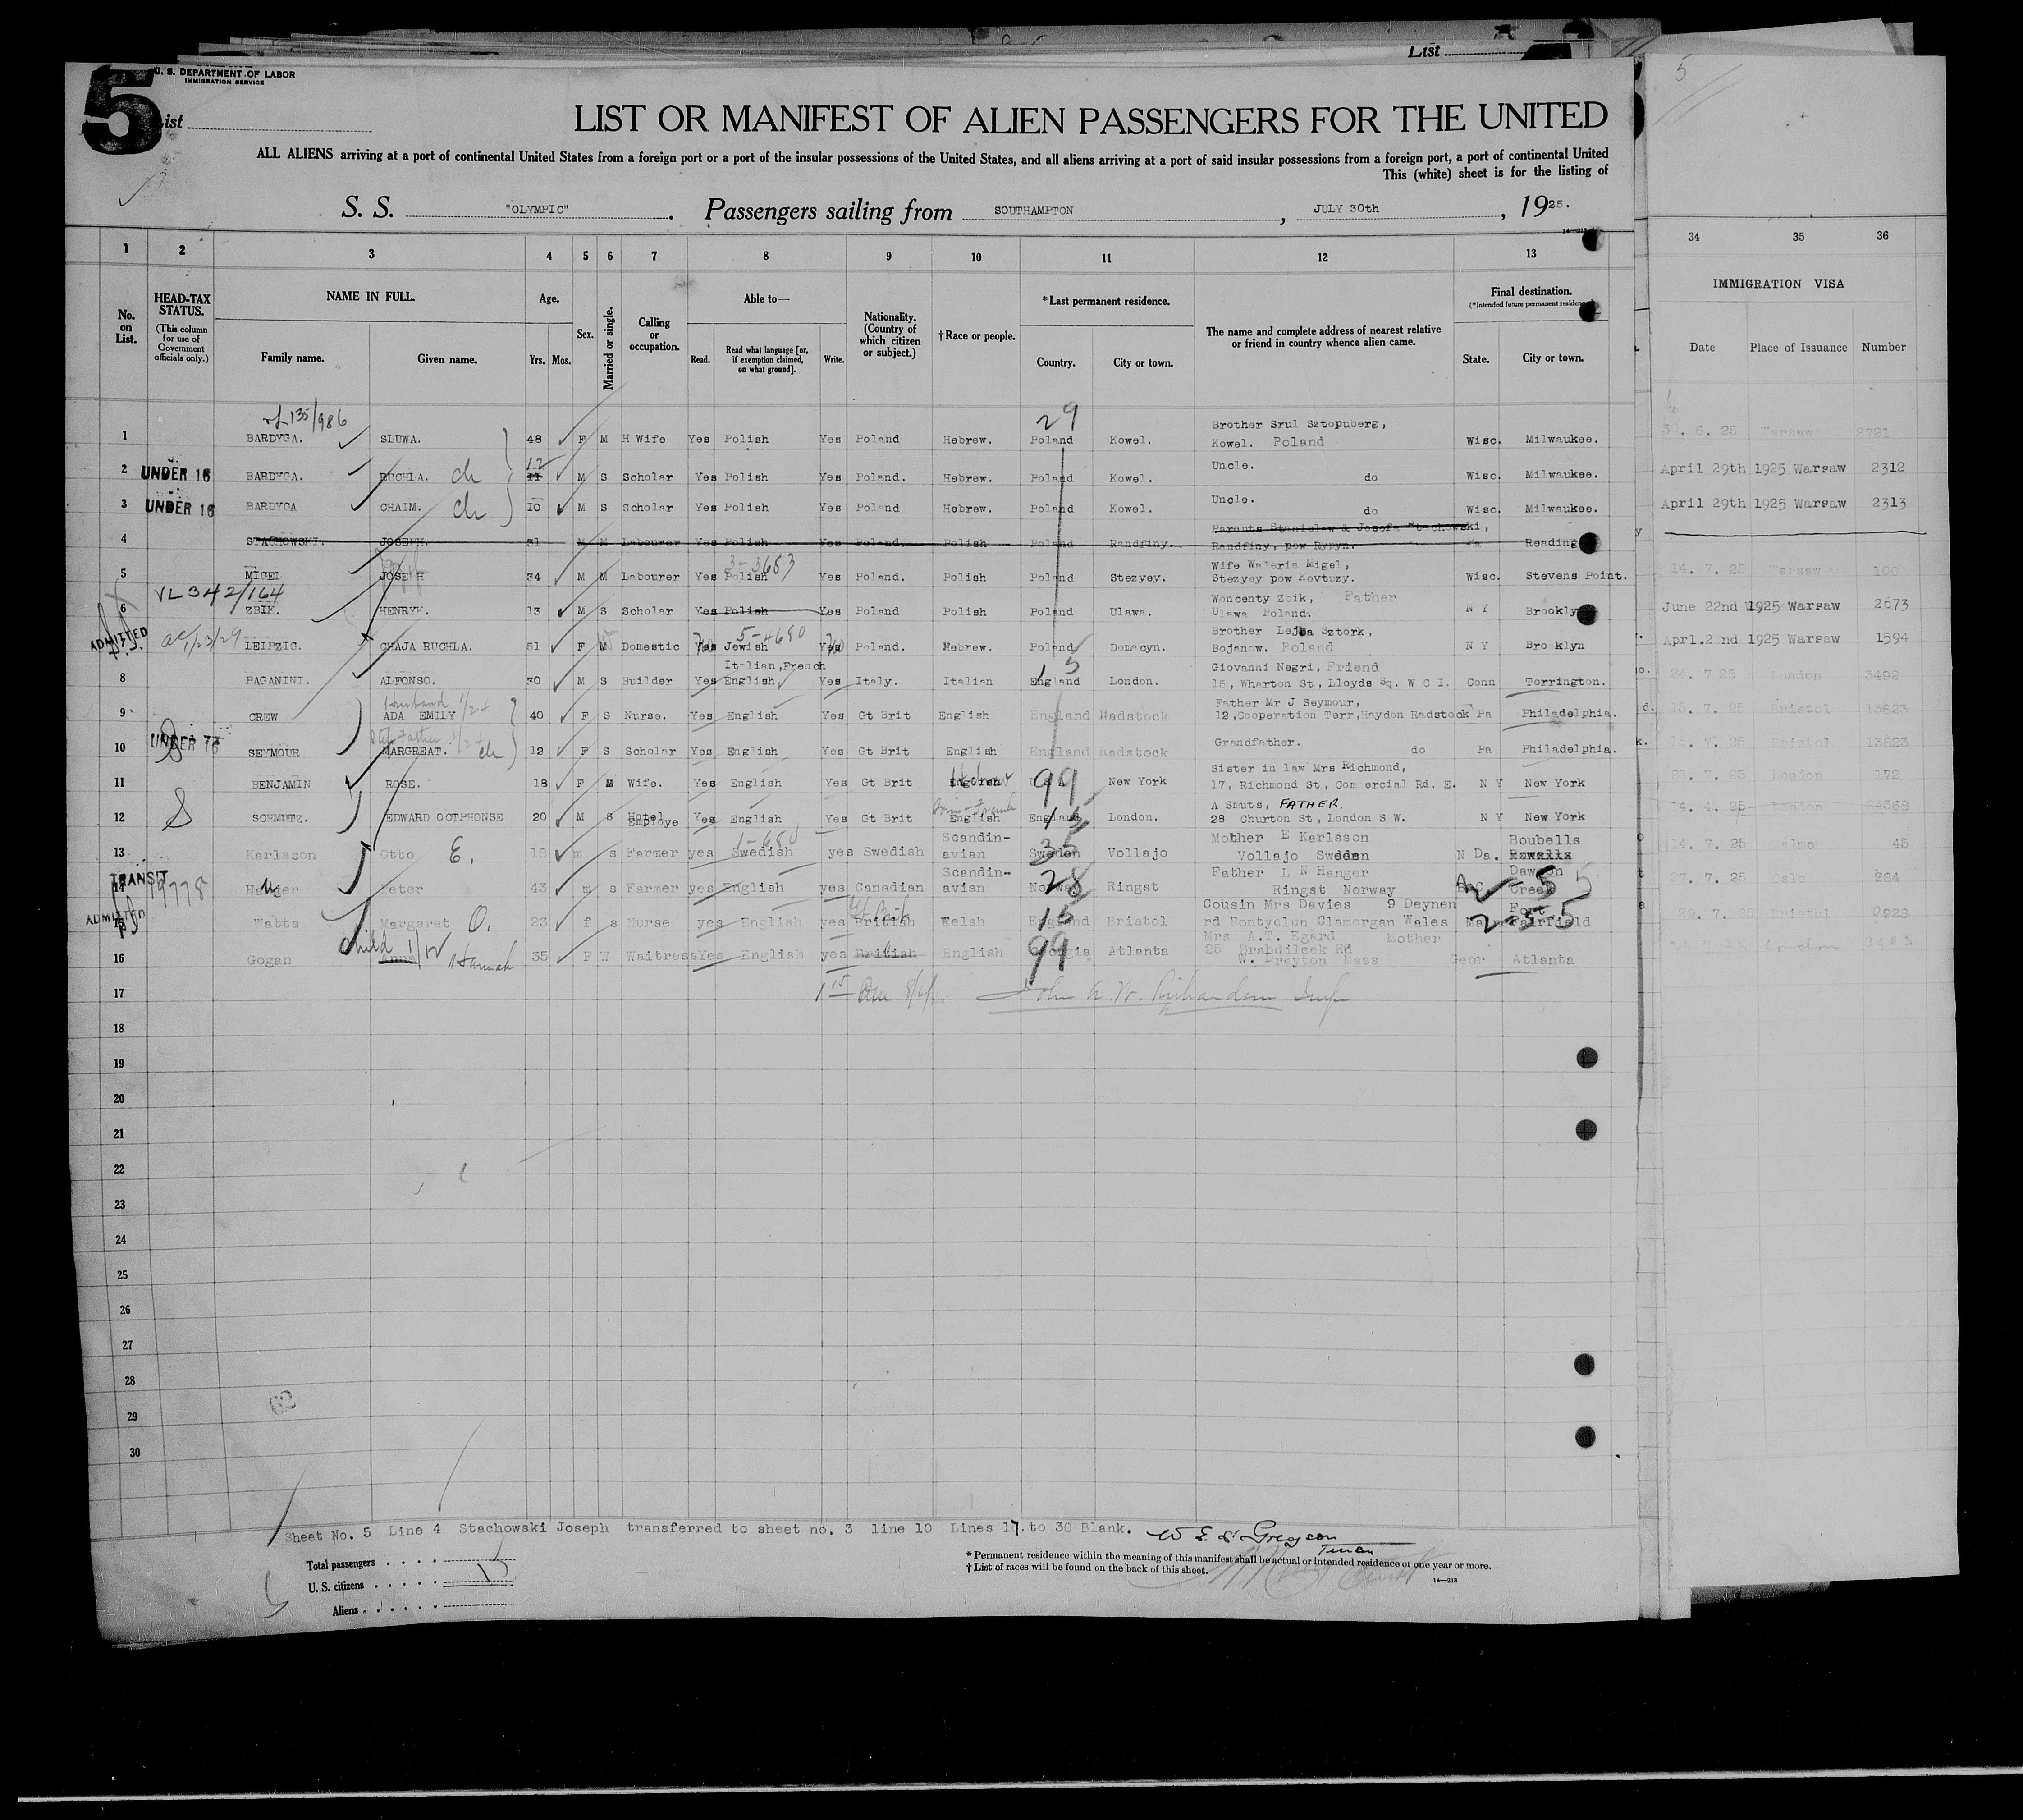 List
5
U. S. DEPARTMENT OF LABOR
IMMIGRATION SERVICE
List
5
LIST OR MANIFEST OF ALIEN PASSENGERS FOR THE UNITED
ALL ALIENS arriving at a port of continental United States from a foreign port or a port of the insular possessions of the United States, and all aliens arriving at a port of said insular possessions from a foreign port, a port of continental United
This (white) sheet is for the listing of
S. S. "OLYMPIC". Passengers sailing from SOUTHAMPTON, JULY 30th, 1925.
14—213
1 2 3 4 5 6 7 8 9 10 11 12 13 34 35 36
No. on List.
HEAD-TAX STATUS.
(This column for use of Government officials only.)
NAME IN FULL.
Family name. Given name.
Age.
Yrs. Mos.
Sex.
Married or single.
Calling or occupation.
Able to—
Read. Read what language [or, if exemption claimed, on what ground]. Write.
Nationality. (Country of which citizen or subject.)
† Race or people.
* Last permanent residence.
Country. City or town.
The name and complete address of nearest relative or friend in country whence alien came.
Final destination.
(*Intended future permanent residence)
State. City or town.
IMMIGRATION VISA
Date Place of Issuance Number
135/986 29
Brother Srul Sztopuberg,
1 BARDYGA. SLUWA. 48 F M H Wife Yes Polish Yes Poland Hebrew. Poland Kowel. Kowel. Poland Wisc. Milwaukee. 30. 6. 25 Warsaw 2721
12 Uncle.
2 UNDER 16 BARDYGA. RUCHLA. ch 11 M S Scholar Yes Polish Yes Poland. Hebrew. Poland Kowel. do Wisc. Milwaukee. April 29th 1925 Warsaw 2312
Uncle.
3 UNDER 16 BARDYGA CHAIM. ch 10 M S Scholar Yes Polish Yes Poland Hebrew. Poland Kowel. do Wisc. Milwaukee. April 29th 1925 Warsaw 2313
Parents Stanislaw & Josefa Stachowski,
4 STACHOWSKI. JOSEPH. 31 M M Labourer Yes Polish Yes Poland. Polish Poland Randfiny. Randfiny, pow Rypyn. Pa Reading
3-3653 Wife Waleria Migel,
5 MIGEL JOSEPH 34 M M Labourer Yes Polish Yes Poland. Polish Poland Stezyey. Stezyey pow Kovtuzy. Wisc. Stevens Point. 14. 7. 25 Warsaw
VL 342/164 Woncenty Zbik, Father
6 ZBIK. HENRYK. 13 M S Scholar Yes Polish Yes Poland Polish Poland Ulawa. Ulawa Poland. N Y Brooklyn June 22nd 1925 Warsaw 2673
ADMITTED 1/23/29 5-4680 Brother Lejba Sztork,
LEIPZIG. CHAJA RUCHLA. 51 F M Domestic Yes Jewish Yes Poland. Hebrew. Poland Domacyn. Bojanow. Poland N Y Brooklyn Aprl.22nd 1925 Warsaw 1594
Italian,French 15 Giovanni Negri, Friend
8 PAGANINI. ALFONSO. 30 M S Builder Yes English Yes Italy. Italian England London. 15, Wharton St, Lloyds Sq. W C I. Conn Torrington. 24. 7 25 London 3492
Husband 1/2+ Father Mr J Seymour,
9 CREW ADA EMILY 40 F S Nurse. Yes English Yes Gt Brit English England Radstock 12,Cooperation Terr,Haydon Radstock Pa Philadelphia. 15. 7. 25 Bristol 13823
UNDER 16 Step father Grandfather.
10 SEYMOUR MARGREAT. ch 12 F S Scholar Yes English Yes Gt Brit English England Radstock do Pa Philadelphia. 15. 7. 25 Bristol 13823
Hebrew Sister in law Mrs Richmond,
11 BENJAMIN ROSE. 18 F M Wife. Yes English Yes Gt Brit English 99 New York 17, Richmond St, Commercial Rd. E. N Y New York 25. 7. 25 London 172
A Smuts, FATHER.
12 SCHMUTZ. EDWARD OCTPHONSE 20 M S Hotel Employe Yes English Yes Gt Brit English England 15 London. 28 Churton St, London S W. N Y New York 14. 4. 25 London
1-680 Scandin- Mother E Karlsson Boubells
13 Karlsson Otto E. m s Farmer yes Swedish yes Swedish avian Sweden 35 Vollajo Vollajo Sweden N Da. 14. 7. 25 Malmo 45
TRANSIT 19778 Scandin- Father L N Hanger Dawson
14 Hanger Peter 43 m s Farmer yes English yes Canadian avian Norway 28 Ringst Ringst Norway Creek 27. 7. 25 Oslo 224
ADMITTED Cousin Mrs Davies 9 Deynen Fort
15 Watts Margaret O. 23 f s Nurse yes English yes British Welsh England 15 Bristol rd Pontyclun Glamorgan Wales Fairfield 29. 7. 25 Bristol
Child Mrs A.T. Egard Mother
16 Gogan Anna Hannah 35 F W Waitress Yes English yes British English Georgia 99 Atlanta 25 Brabdileek Rd Geor Atlanta London
W. Drayton Mess
17 John A. W. Richardson
18
19
20
21
22
23
24
25
26
27
28
29
30
62
Sheet No. 5 Line 4 Stachowski Joseph transferred to sheet no. 3 line 10 Lines 17.to 30 Blank.
Total passengers
U. S. citizens
Aliens
* Permanent residence within the meaning of this manifest shall be actual or intended residence of one year or more.
† List of races will be found on the back of this sheet.
14—213